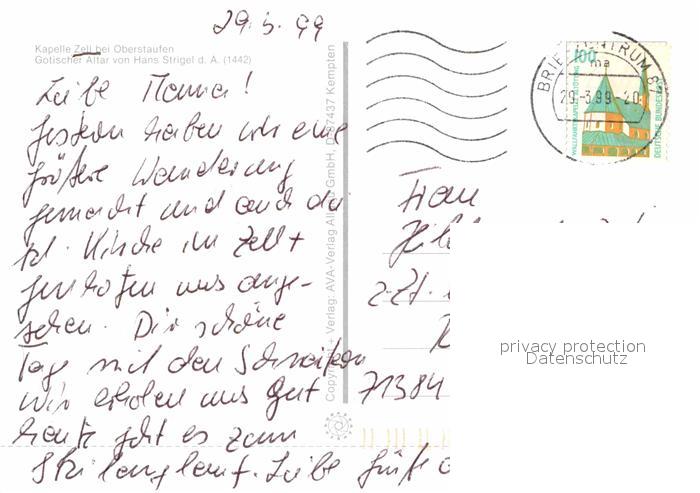 29.3.99
Kapelle Zell bei Oberstaufen
Gotischer Altar von Hans Strigel d. A. (1442)
Liebe Mama!
Gestern haben wir eine
größere Wanderung
gemacht und auch die
Kirche in Zell +
Genhofen uns ange-
sehen. Die schöne
Tage mit den
wir erholen uns gut
heute geht es zum
Skilanglauf. Liebe Grüße
Copyright + Verlag: AVA-Verlag GmbH, D-87437 Kempten
BRIEFZENTRUM 87
ma
29.-3.99-20
100
DEUTSCHE BUNDESPOST
Frau
z.Zt.
71384
privacy protection
Datenschutz